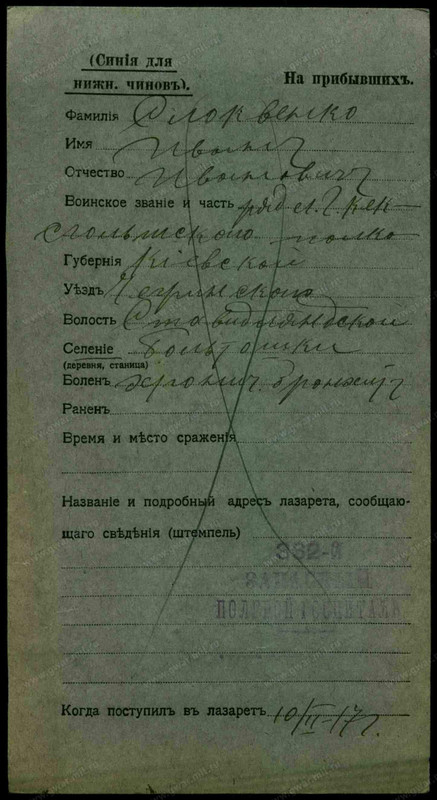 (Синія для
нижн. чиновъ).
На прибывшихъ.
Фамилія Слоквенко
Имя Иванъ
Отчество Ивановичъ
Воинское званіе и часть ряд. л. г. Кек-
сгольмскаго полка
Губернія Кіевской
Уѣздъ
Волость
Селеніе
(деревня, станица)
Боленъ хронич. бронхитъ
Раненъ
Время и мѣсто сраженія
Названіе и подробный адресъ лазарета, сообщаю-
щаго свѣдѣнія (штемпель)
332-й
ЗАПАСНЫЙ
ПОЛЕВОЙ ГОСПИТАЛЬ
Когда поступилъ въ лазаретъ 10/II-17 г.